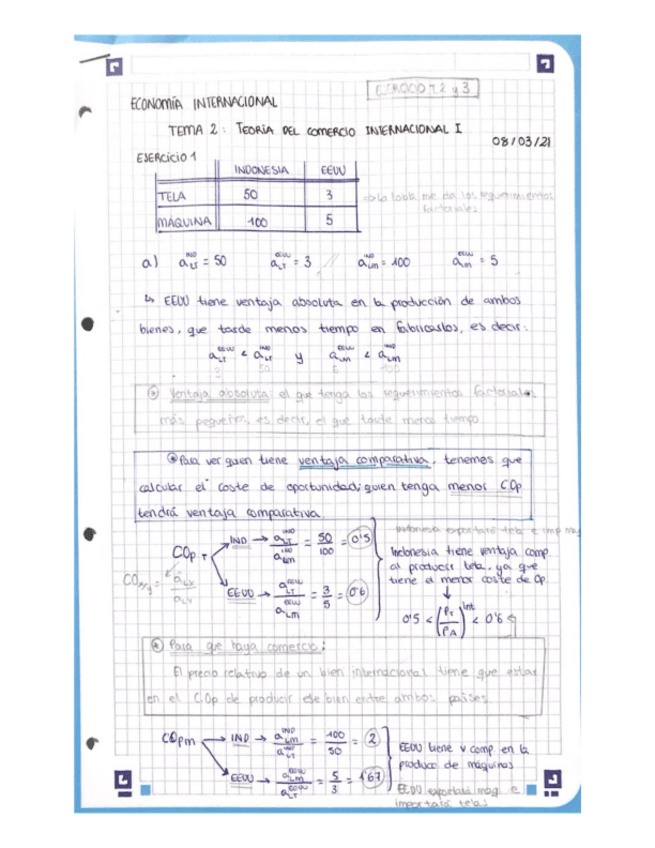 EJERCICIO T.2 y 3
ECONOMÍA INTERNACIONAL
TEMA 2: TEORÍA DEL COMERCIO INTERNACIONAL I
08/03/21
EJERCICIO 1
INDONESIA EEUU
TELA 50 3
MÁQUINA 100 5
=> La tabla me da los requerimientos
factoriales
a) a_LT^IND = 50 a_LT^EEUU = 3 // a_LM^IND = 100 a_LM^EEUU = 5
↳ EEUU tiene ventaja absoluta en la producción de ambos
bienes, que tarde menos tiempo en fabricarlos, es decir:
a_LT^EEUU < a_LT^IND y a_LM^EEUU < a_LM^IND
3 50 5 100
* Ventaja absoluta: el que tenga los requerimientos factoriales
más pequeños, es decir, el que tarde menos tiempo
* Para ver quien tiene ventaja comparativa, tenemos que
calcular el coste de oportunidad; quien tenga menor COp
tendrá ventaja comparativa.
COp T
IND → a_LT^IND / a_LM^IND = 50/100 = 0'5
EEUU → a_LT^EEUU / a_LM^EEUU = 3/5 = 0'6
CO x/y = a_LX / a_LY
Indonesia exportará tela e imp maq
Indonesia tiene ventaja comp.
al producir tela, ya que
tiene el menor coste de Op.
↓
0'5 < (P_T / P_A)^Int < 0'6
* Para que haya comercio:
El precio relativo de un bien internacional tiene que estar
en el COp de producir ese bien entre ambos países
COp m
IND → a_LM^IND / a_LT^IND = 100/50 = 2
EEUU → a_LM^EEUU / a_LT^EEUU = 5/3 = 1'67
EEUU tiene v comp. en la
produce de máquinas
EEUU exportará maq. e
importará telas